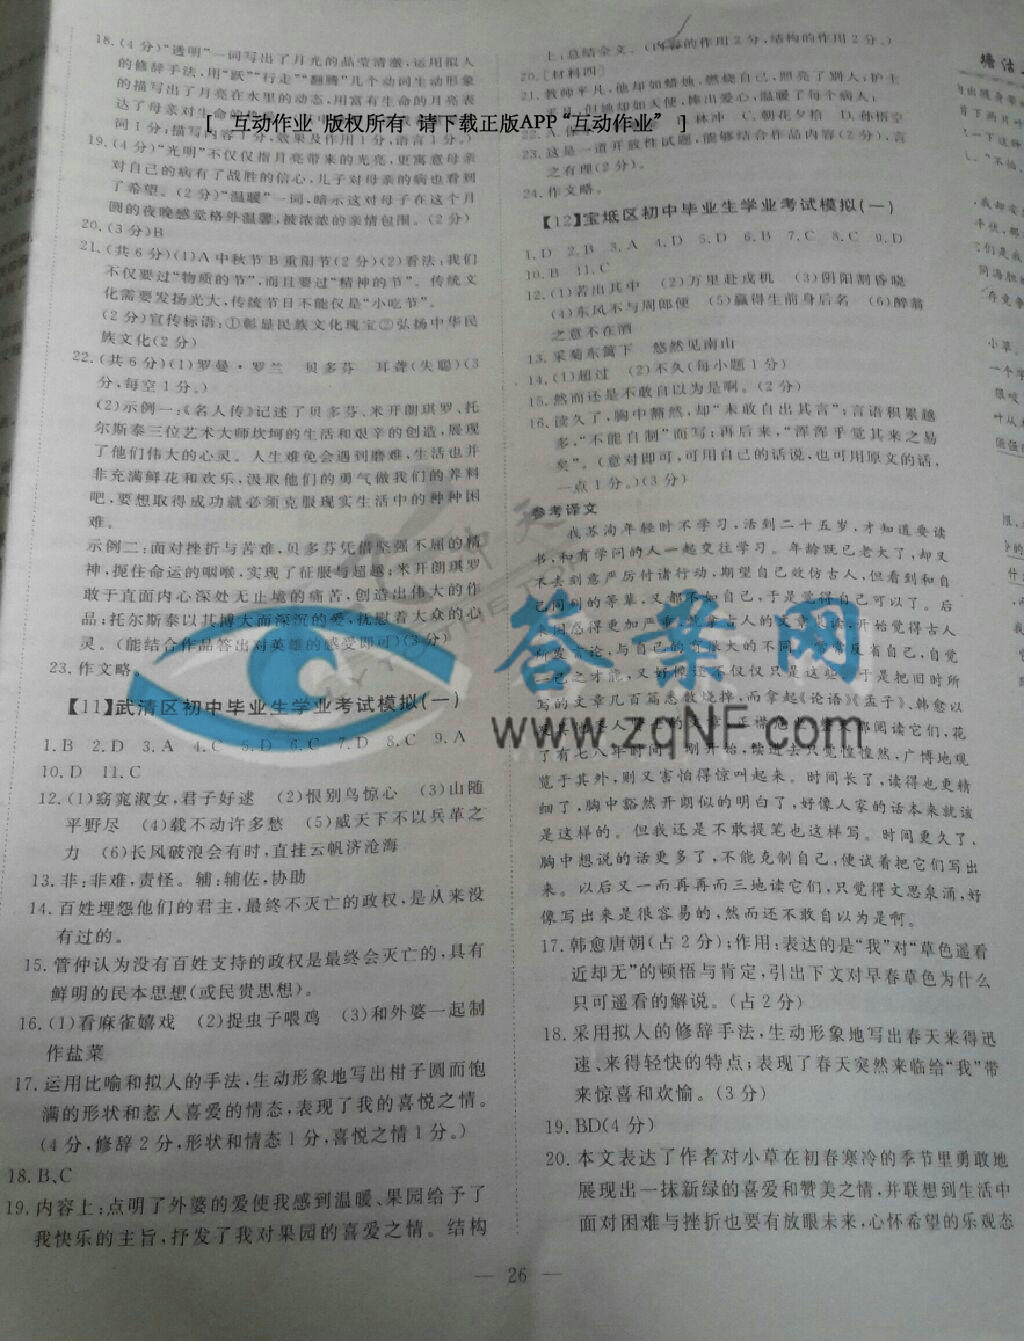 18.(4分)“透明”一词写出了月光的晶莹清澈,运用拟人
的修辞手法,用“跃”“行走”“翻腾”几个动词生动形象
的描写出了月亮在水里的动态,用富有生命的月亮表
达了母亲对生命的
词1分;描写内容1分,效果及作用1分,语言1分。)
[ 互动作业 版权所有 请下载正版APP“互动作业” ]
19.(4分)“光明”不仅仅指月亮带来的光亮,更寓意母亲
对自己的病有了战胜的信心,儿子对母亲的病也看到
了希望。(2分)“温暖”一词,暗示这对母子在这个月
圆的夜晚感觉格外温馨,被浓浓的亲情包围。(2分)
20.(3分)B
21.(共6分)(1)A中秋节B重阳节(2分)(2)看法:我们
不仅要过“物质的节”,而且要过“精神的节”。传统文
化需要发扬光大,传统节日不能仅是“小吃节”。
(2分)宣传标语:①彰显民族文化瑰宝②弘扬中华民
族文化(2分)
22.(共6分)(1)罗曼·罗兰 贝多芬 耳聋(失聪)(3
分,每空1分。)
(2)示例一:《名人传》记述了贝多芬、米开朗琪罗、托
尔斯泰三位艺术大师坎坷的生活和艰辛的创造,展现
了他们伟大的心灵。人生难免会遇到磨难,生活也并
非充满鲜花和欢乐,汲取他们的勇气做我们的养料
吧,要想取得成功就必须克服现实生活中的种种困
难。
示例二:面对挫折与苦难,贝多芬凭借坚强不屈的精
神,扼住命运的咽喉,实现了征服与超越;米开朗琪罗
敢于直面内心深处无止境的痛苦,创造出伟大的作
品;托尔斯泰以其博大而深沉的爱,抚慰着大众的心
灵。(能结合作品答出对英雄的感受即可)(3分)
23.作文略。
【11】武清区初中毕业生学业考试模拟(一)
1.B 2.D 3.A 4.C 5.D 6.C 7.D 8.C 9.A
10.D 11.C
12.(1)窈窕淑女,君子好逑 (2)恨别鸟惊心 (3)山随
平野尽 (4)载不动许多愁 (5)威天下不以兵革之
力 (6)长风破浪会有时,直挂云帆济沧海
13.非:非难,责怪。辅:辅佐,协助
14.百姓埋怨他们的君主,最终不灭亡的政权,是从来没
有过的。
15.管仲认为没有百姓支持的政权是最终会灭亡的,具有
鲜明的民本思想(或民贵思想)。
16.(1)看麻雀嬉戏 (2)捉虫子喂鸡 (3)和外婆一起制
作盐菜
17.运用比喻和拟人的手法,生动形象地写出柑子圆而饱
满的形状和惹人喜爱的情态,表现了我的喜悦之情。
(4分,修辞2分,形状和情态1分,喜悦之情1分。)
18.B、C
19.内容上:点明了外婆的爱使我感到温暖、果园给予了
我快乐的主旨,抒发了我对果园的喜爱之情。结构
上:总结全文。(内容的作用2分,结构的作用2分。)
20.[材料四]
21.教师平凡,他却如蜡烛,燃烧自己,照亮了别人;护士
平凡,但她却如天使,捧出爱心,温暖了每个病人;
林冲 C.朝花夕拾 D.孙悟空
23.这是一道开放性试题,能够结合作品内容(2分),言
之有理(2分)。
24.作文略。
【12】宝坻区初中毕业生学业考试模拟(一)
1.D 2.B 3.A 4.D 5.D 6.B 7.C 8.C 9.D
10.B 11.C
12.(1)若出其中 (2)万里赴戎机 (3)阴阳割昏晓
(4)东风不与周郎便 (5)赢得生前身后名 (6)醉翁
之意不在酒
13.采菊东篱下 悠然见南山
14.(1)超过 (2)不久(每小题1分)
15.然而还是不敢自以为是啊。(2分)
16.读久了,胸中豁然,却“未敢自出其言”;言语积累越
多,“不能自制”而写;再后来,“浑浑乎觉其来之易
矣”。(意对即可,可用自己的话说,也可用原文的话,
一点1分。)(3分)
参考译文
我苏洵年轻时不学习,活到二十五岁,才知道要读
书,和有学问的人一起交往学习。年龄既已老大了,却又
不去刻意严厉付诸行动,期望自己效仿古人,但看到和自
己同列的等辈,又都不如自己,于是觉得自己可以了。后
写的文章几百篇悉数烧掉,而拿起《论语》《孟子》、韩愈以
览于其外,则又害怕得惊叫起来。时间长了,读得也更精
细了,胸中豁然开朗似的明白了,好像人家的话本来就该
是这样的。但我还是不敢提笔也这样写。时间更久了,
胸中想说的话更多了,不能克制自己,便试着把它们写出
来。以后又一而再再而三地读它们,只觉得文思泉涌,好
像写出来是很容易的,然而还不敢自以为是啊。
17.韩愈唐朝(占2分);作用:表达的是“我”对“草色遥看
近却无”的顿悟与肯定,引出下文对早春草色为什么
只可遥看的解说。(占2分)
18.采用拟人的修辞手法,生动形象地写出春天来得迅
速、来得轻快的特点;表现了春天突然来临给“我”带
来惊喜和欢愉。(3分)
19.BD(4分)
20.本文表达了作者对小草在初春寒冷的季节里勇敢地
展现出一抹新绿的喜爱和赞美之情,并联想到生活中
面对困难与挫折也要有放眼未来,心怀希望的乐观态
答案网
www.zqNF.com
— 26 —